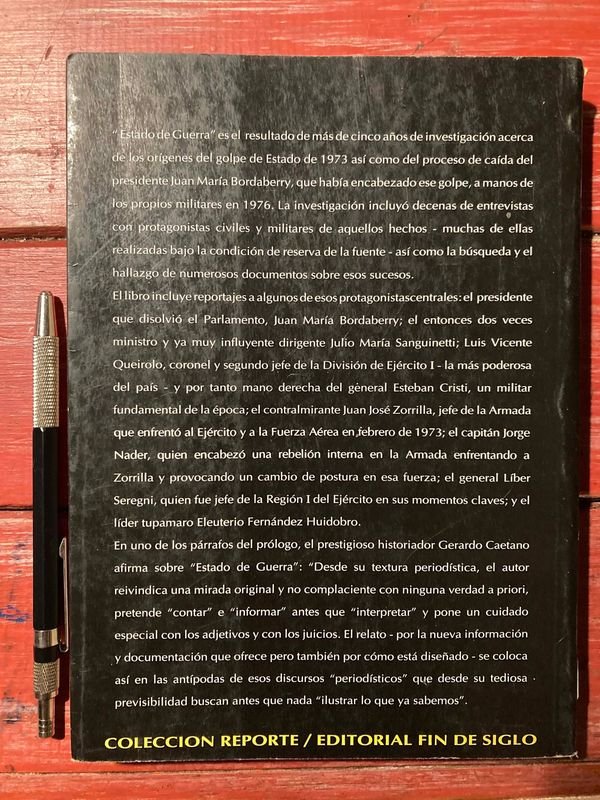 “Estado de Guerra” es el resultado de más de cinco años de investigación acerca
de los orígenes del golpe de Estado de 1973 así como del proceso de caída del
presidente Juan María Bordaberry, que había encabezado ese golpe, a manos de
los propios militares en 1976. La investigación incluyó decenas de entrevistas
con protagonistas civiles y militares de aquellos hechos - muchas de ellas
realizadas bajo la condición de reserva de la fuente - así como la búsqueda y el
hallazgo de numerosos documentos sobre esos sucesos.
El libro incluye reportajes a algunos de esos protagonistascentrales: el presidente
que disolvió el Parlamento, Juan María Bordaberry; el entonces dos veces
ministro y ya muy influyente dirigente Julio María Sanguinetti; Luis Vicente
Queirolo, coronel y segundo jefe de la División de Ejército I - la más poderosa
del país - y por tanto mano derecha del general Esteban Cristi, un militar
fundamental de la época; el contralmirante Juan José Zorrilla, jefe de la Armada
que enfrentó al Ejército y a la Fuerza Aérea en febrero de 1973; el capitán Jorge
Nader, quien encabezó una rebelión interna en la Armada enfrentando a
Zorrilla y provocando un cambio de postura en esa fuerza; el general Líber
Seregni, quien fue jefe de la Región I del Ejército en sus momentos claves; y el
líder tupamaro Eleuterio Fernández Huidobro.
En uno de los párrafos del prólogo, el prestigioso historiador Gerardo Caetano
afirma sobre “Estado de Guerra”: “Desde su textura periodística, el autor
reivindica una mirada original y no complaciente con ninguna verdad a priori,
pretende “contar” e “informar” antes que “interpretar” y pone un cuidado
especial con los adjetivos y con los juicios. El relato - por la nueva información
y documentación que ofrece pero también por cómo está diseñado - se coloca
así en las antípodas de esos discursos “periodísticos” que desde su tediosa
previsibilidad buscan antes que nada “ilustrar lo que ya sabemos”.
COLECCION REPORTE / EDITORIAL FIN DE SIGLO